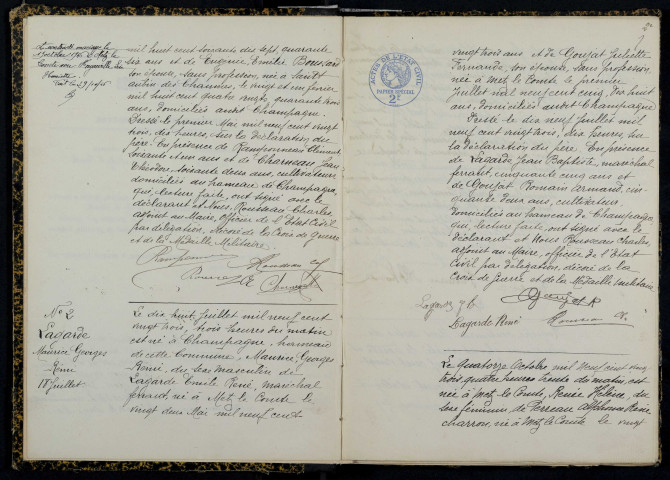 mil huit cent soixante dix sept, quarante
six ans et de Eugénie Emilie
son épouse, sans profession, née à Saint
Aubin des Chaumes, le vingt et un février
mil huit cent quatre vingts, quarante trois
ans, domiciliés audit Champagne.
Dressé le premier Mai mil neuf cent vingt
trois, dix heures, sur la déclaration du
père. En présence de Clément,
soixante et un ans et de Charneau Jean
Théodore, soixante deux ans, cultivateurs
domiciliés au hameau de Champagne,
qui, lecture faite, ont signé avec le
déclarant et Nous, Rousseau Charles,
adjoint au Maire, officier de l'Etat Civil
par délégation, décoré de la Croix de Guerre
et de la Médaille Militaire.
N° 2
Lagarde
Maurice Georges
Rémi
18 Juillet
Le dix huit Juillet mil neuf cent
vingt trois, trois heures du matin
est né à Champagne, hameau
de cette Commune, Maurice, Georges
Rémi, du sexe masculin de
Lagarde Emile René, maréchal
ferrant, né à Metz le Comte le
vingt deux Mai mil neuf cent
ACTES DE L'ETAT CIVIL
PAPIER SPECIAL
2F
vingt trois ans et de Goujat Juliette
Fernande, son épouse, sans profession
née à Metz le Comte le premier
Juillet mil neuf cent cinq, dix huit
ans, domiciliés audit Champagne
Dressé le dix neuf Juillet mil
neuf cent vingt trois, dix heures, sur
la déclaration du père. En présence
de Lagarde Jean Baptiste, maréchal
ferrant, cinquante cinq ans et
de Goujat Romain Armand, cin-
quante deux ans, cultivateur
domiciliés au hameau de Champagne,
qui, lecture faite, ont signé avec le
déclarant et Nous Rousseau Charles,
adjoint au Maire, officier de l'Etat
Civil par délégation, décoré de la
Croix de Guerre et de la Médaille militaire.
Lagarde J B
Lagarde René
Le Quatorze Octobre mil Neuf cent vingt
trois, quatre heures trente du matin, est
née à Metz le Comte, Renée Hélène, du
sexe féminin de Perreau Alphonse René
charron, né à Metz le Comte le vingt